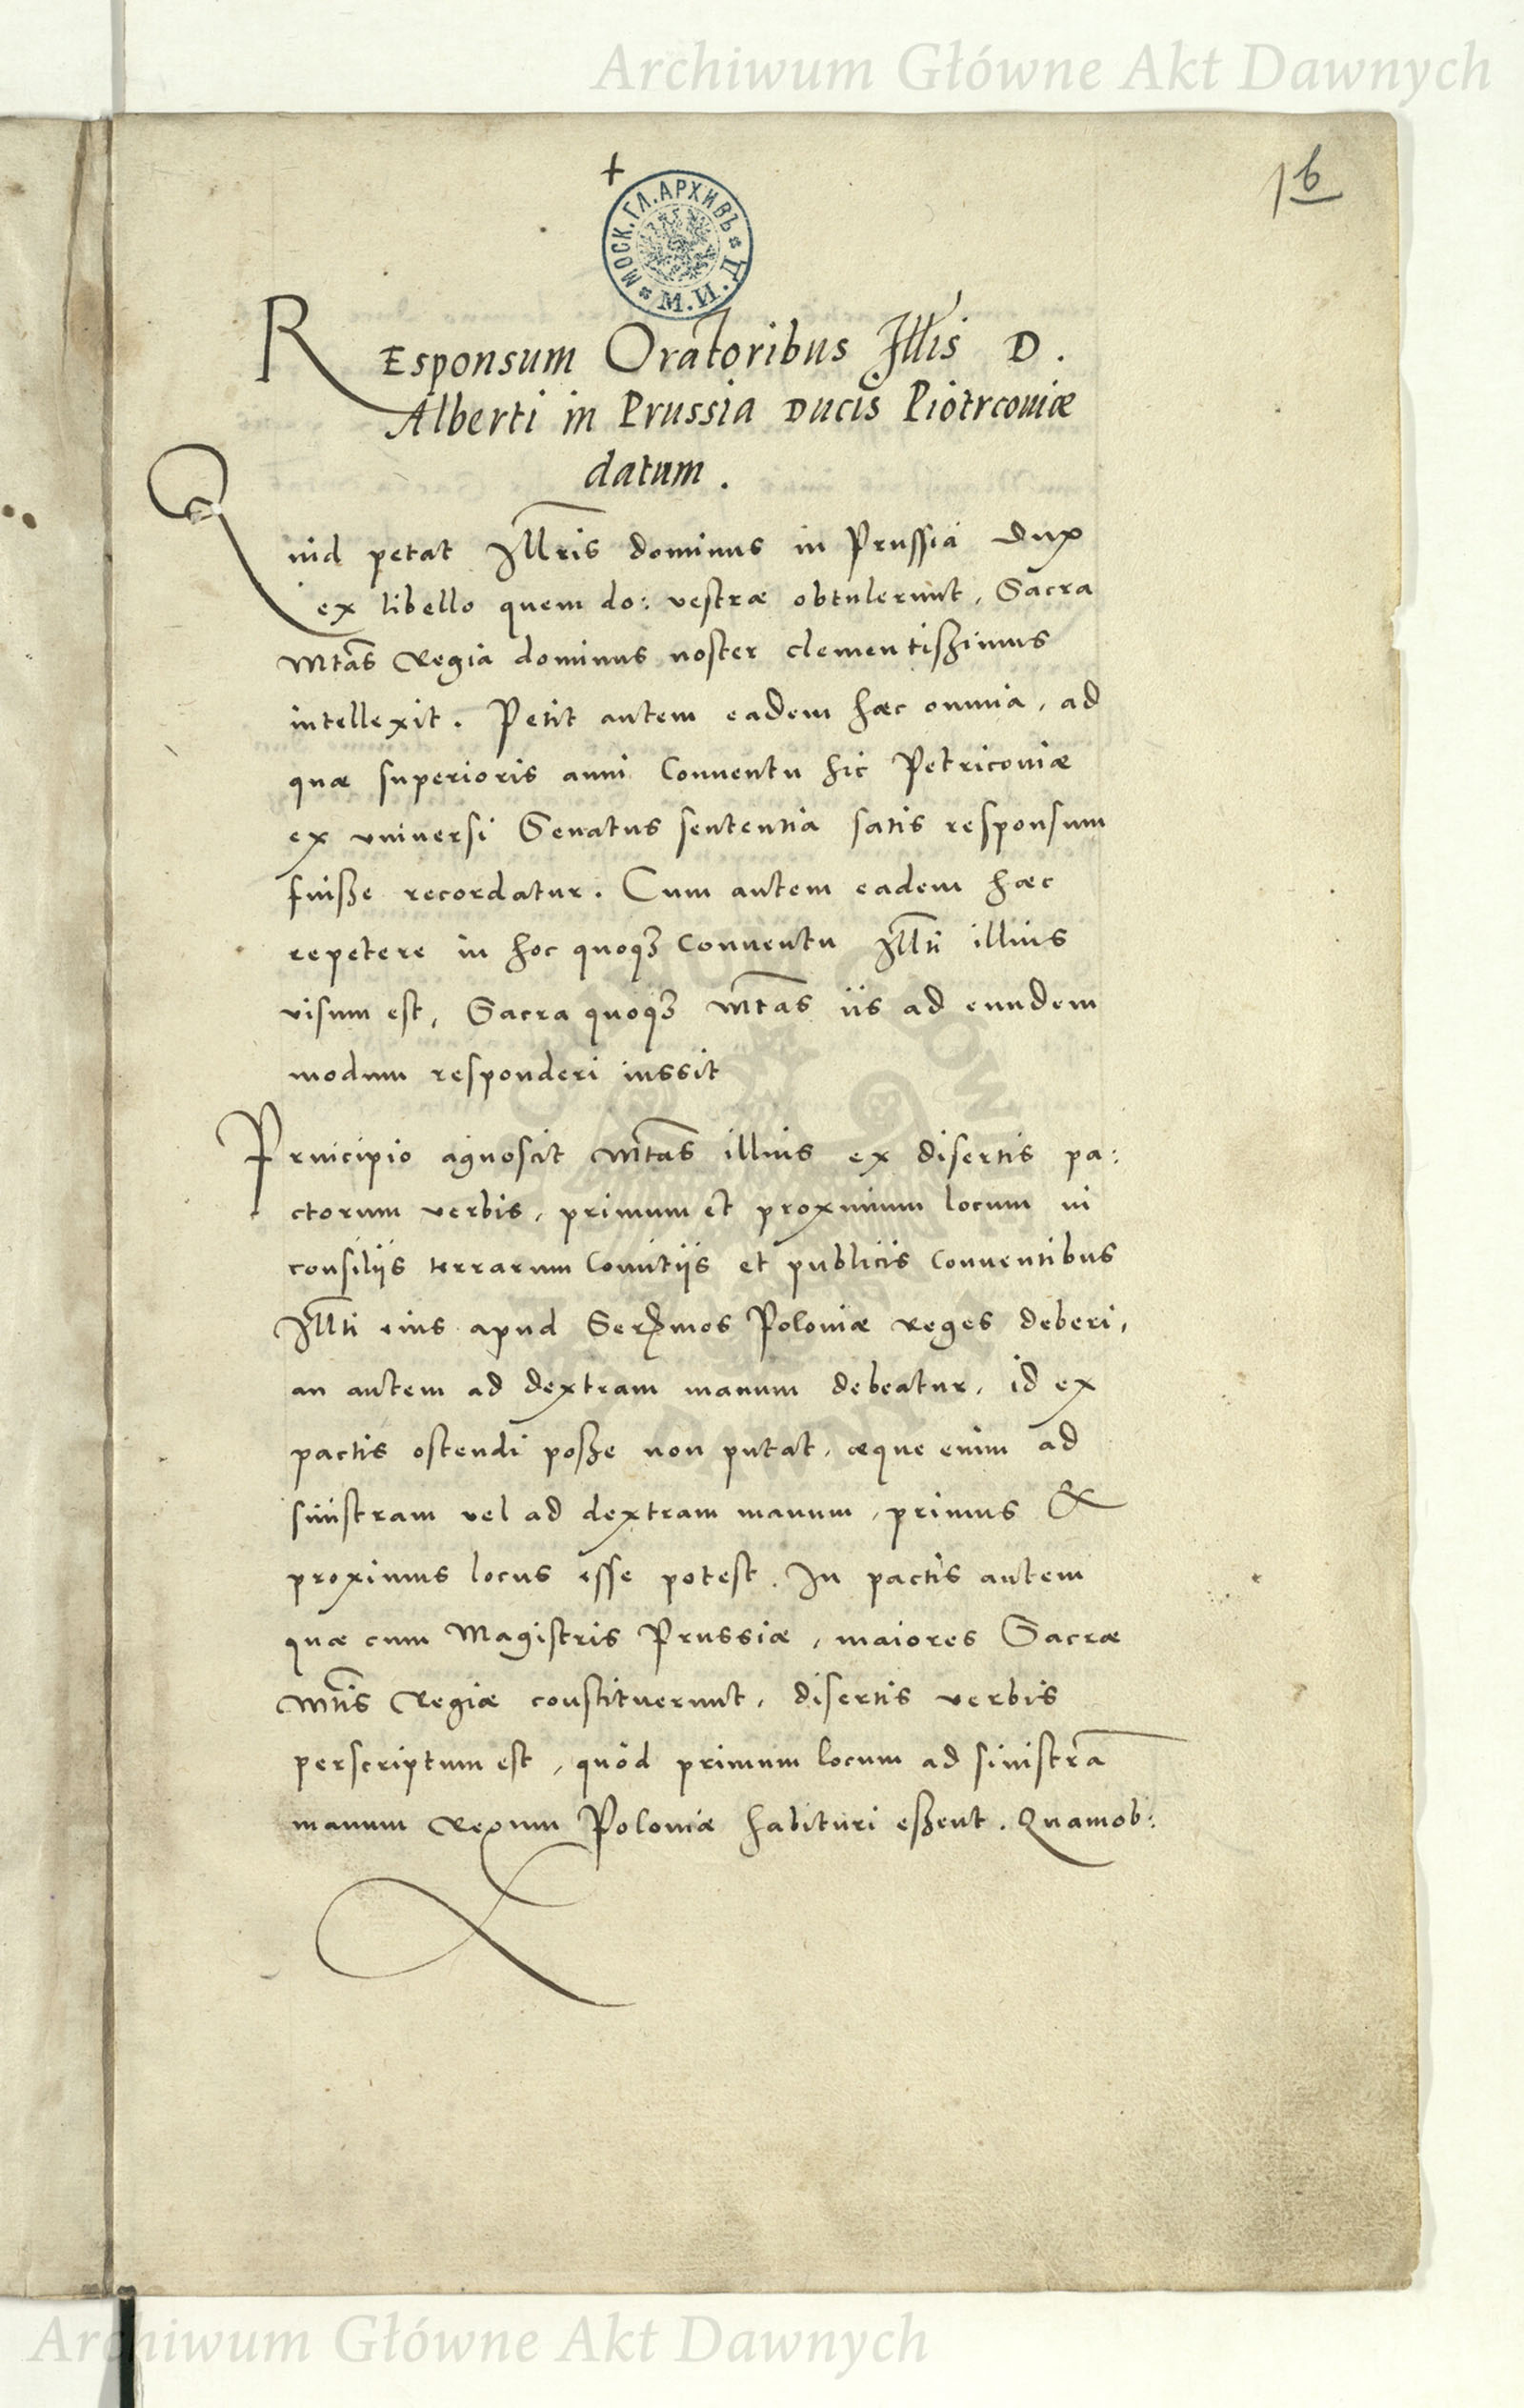 Archiwum Główne Akt Dawnych
+
16
МОСК.ГЛ.АРХИВЪ * М.И.Д. *
REsponsum Oratoribus Illis D.
Alberti in Prussia Ducis Piotrcouiæ
datum.
Quid petat Illris dominus in Prussia Dux
ex libello quem do: vestræ obtulerunt, Sacra
Mtas Regia dominus noster clementißimus
intellexit. Petit autem eadem hæc omnia, ad
quæ superioris anni Conuentu hic Petricouiæ
ex vniuersi Senatus sententia satis responsum
fuiße recordatur. Cum autem eadem hæc
repetere in hoc quoqȝ Conuentu Illti illius
visum est, Sacra quoqȝ Mtas iis ad eundem
modum responderi iussit
Principio agnoscit Mtas illius ex disertis pa:
ctorum verbis, primum et proximum locum in
consiliis terrarum Comitiis et publicis Conuentibus
Illti eius apud Sermos Poloniæ Reges deberi,
an autem ad dextram manum debeatur, id ex
pactis ostendi poße non putat, æque enim ad
sinistram vel ad dextram manum, primus &
proximus locus esse potest. In pactis autem
quæ cum Magistris Prussiæ, maiores Sacræ
Mtis Regiæ constituerunt, disertis verbis
perscriptum est, quòd primum locum ad sinistrā
manum Regum Poloniæ habituri eßent. Quamob:
Archiwum Główne Akt Dawnych